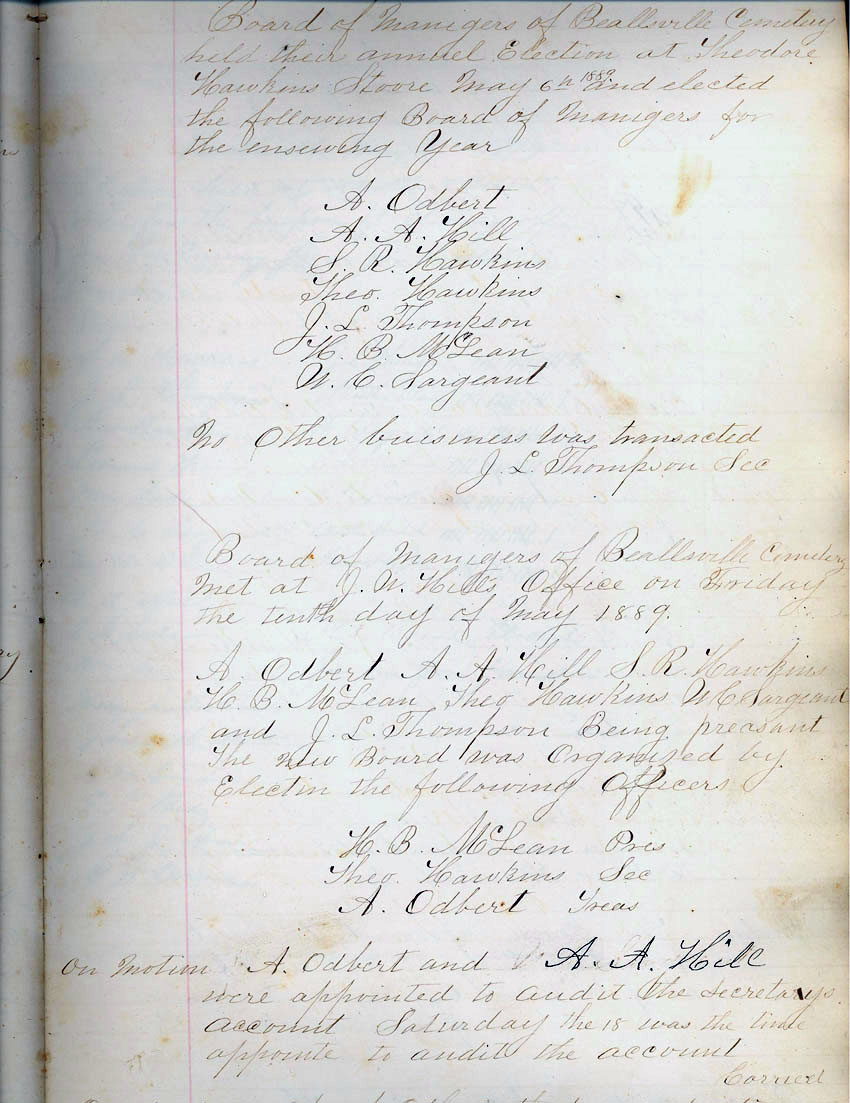 Board of Manigers of Beallsville Cemetery
held their annuel Election at Theodore
Hawkins Stoore May 6th 1889 and elected
the following Board of Manigers for
the ensewing Year
A. Odbert
A. A. Hill
S. R. Hawkins
Theo. Hawkins
J. L. Thompson
H. B. McLean
W. C. Sargeant
No Other buisiness was transacted
J. L. Thompson Sec
Board of Manigers of Beallsville Cemetery
Met at J. W. Hill's Office on Friday
the tenth day of May 1889.
A Odbert A. A Hill S. R. Hawkins
H. B. McLean Theo Hawkins W C Sargeant
and J. L. Thompson Being preasant
The new Board was Organized by
Electin the following Officers
H. B. McLean Pres
Theo. Hawkins Sec
A. Odbert Treas
On Motion A. Odbert and A. A. Hill
were appointed to audit the Secretarys
account Saturday the 18 was the time
appointe to audit the account
Carried